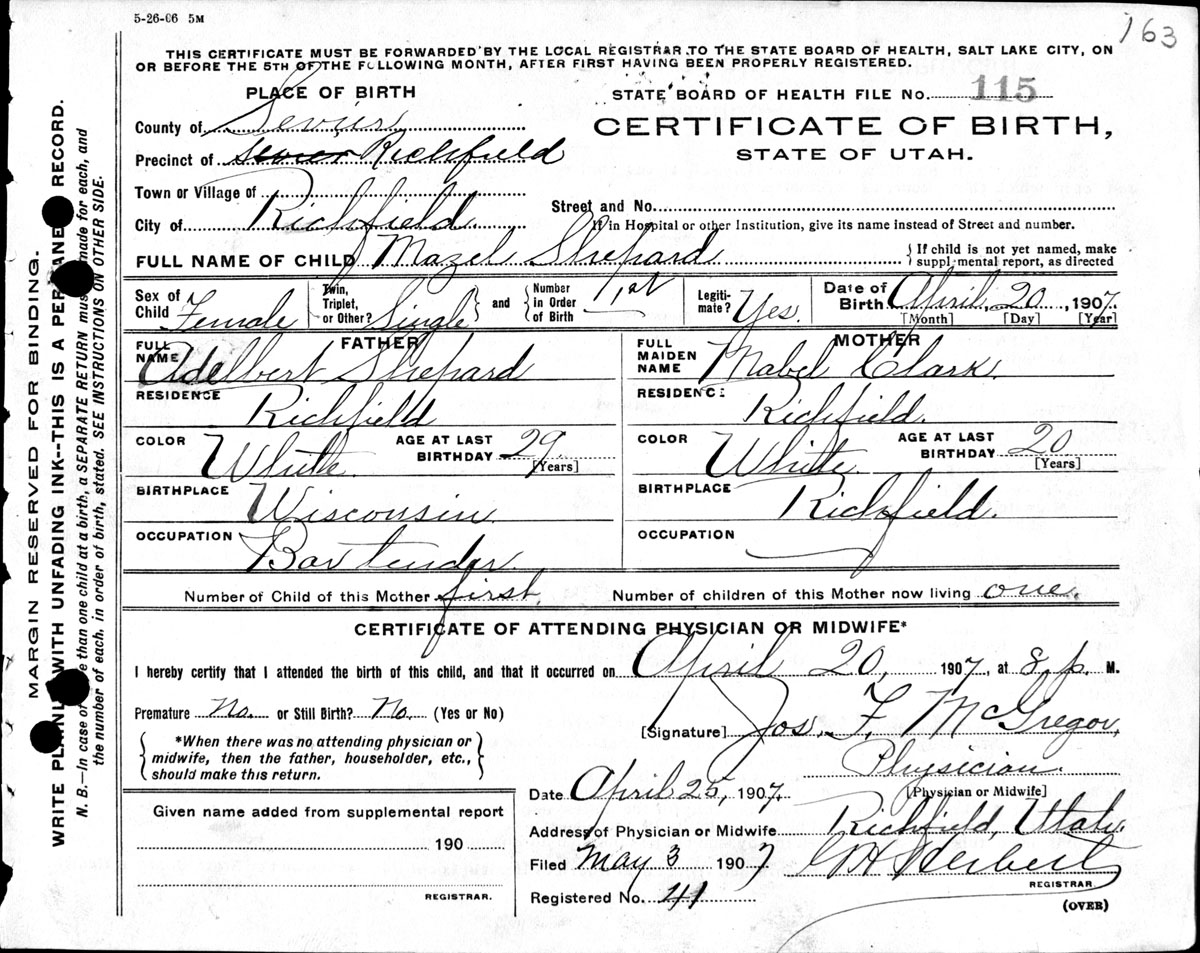 5-26-06 5M
163
THIS CERTIFICATE MUST BE FORWARDED BY THE LOCAL REGISTRAR TO THE STATE BOARD OF HEALTH, SALT LAKE CITY, ON
OR BEFORE THE 5TH OF THE FOLLOWING MONTH, AFTER FIRST HAVING BEEN PROPERLY REGISTERED.
PLACE OF BIRTH
STATE BOARD OF HEALTH FILE No. 115
County of Sevier
CERTIFICATE OF BIRTH,
Precinct of Sevier Richfield
STATE OF UTAH.
Town or Village of
Street and No.
City of Richfield
If in Hospital or other Institution, give its name instead of Street and number.
FULL NAME OF CHILD Mazel Shepard
{If child is not yet named, make
supplemental report, as directed
Sex of Child Female
Twin, Triplet, or Other? Single
and Number in Order of Birth 1st
Legiti-mate? Yes.
Date of Birth April, 20, 1907.
[Month] [Day] [Year]
FATHER
FULL NAME Adelbert Shepard
RESIDENCE Richfield
COLOR White
AGE AT LAST BIRTHDAY 29
[Years]
BIRTHPLACE Wisconsin
OCCUPATION Bartender
MOTHER
FULL MAIDEN NAME Mabel Clark.
RESIDENCE Richfield.
COLOR White.
AGE AT LAST BIRTHDAY 20
[Years]
BIRTHPLACE Richfield.
OCCUPATION
Number of Child of this Mother first. Number of children of this Mother now living one.
CERTIFICATE OF ATTENDING PHYSICIAN OR MIDWIFE*
I hereby certify that I attended the birth of this child, and that it occurred on April 20, 1907, at 8 p. M.
Premature No. or Still Birth? No. (Yes or No)
[Signature] Jos. F. McGregor,
*When there was no attending physician or
midwife, then the father, householder, etc.,
should make this return.
Physician.
[Physician or Midwife]
Date April 25, 1907.
Given name added from supplemental report
190
REGISTRAR.
Address of Physician or Midwife Richfield, Utah.
Filed May 3 1907 Herbert
REGISTRAR
Registered No. 41
(OVER)
MARGIN RESERVED FOR BINDING.
WRITE PLAINLY WITH UNFADING INK--THIS IS A PERMANENT RECORD.
N. B.—In case of more than one child at a birth, a SEPARATE RETURN must be made for each, and
the number of each, in order of birth, stated. SEE INSTRUCTIONS ON OTHER SIDE.